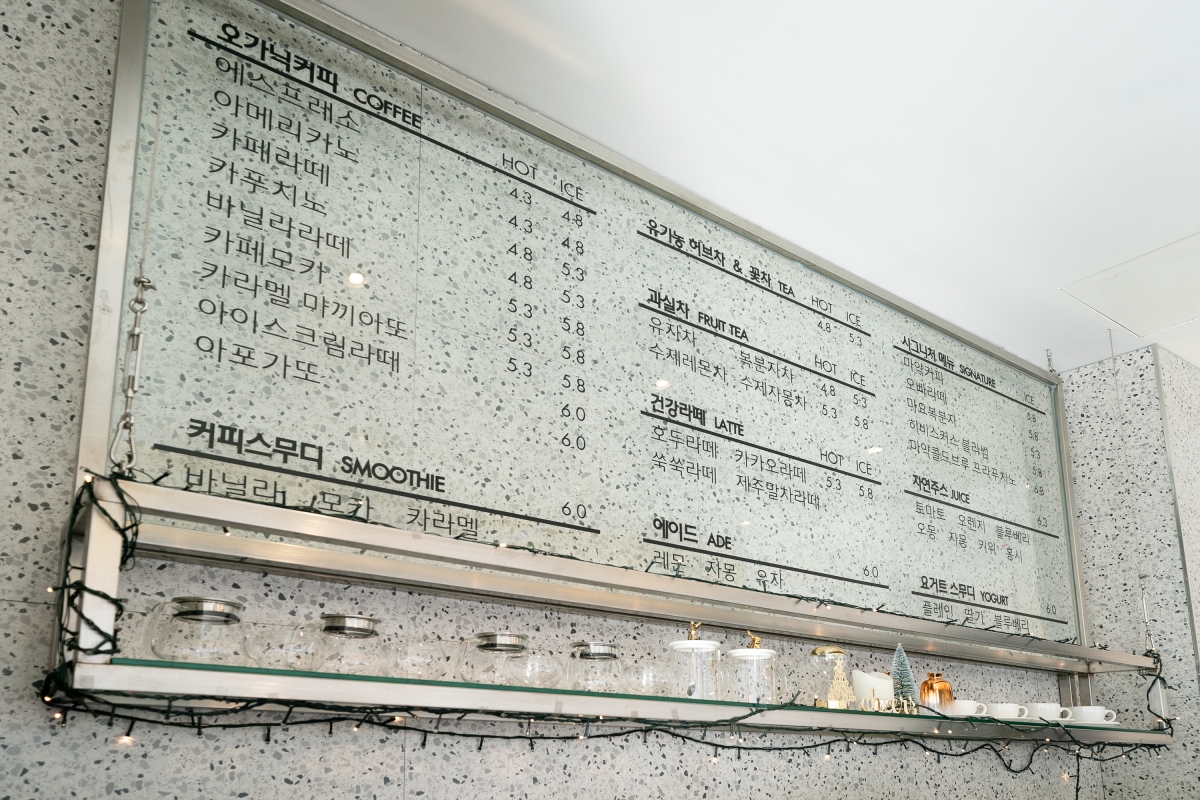 오가닉커피 COFFEE HOT ICE
에스프레소 4.3 4.8
아메리카노 4.3 4.8
카페라떼 4.8 5.3
카푸치노 4.8 5.3
바닐라라떼 5.3 5.8
카페모카 5.3 5.8
카라멜 마끼아또 5.3 5.8
아이스크림라떼 6.0
아포가또 6.0
커피스무디 SMOOTHIE 6.0
바닐라 모카 카라멜
유기농 허브차 & 꽃차 TEA HOT ICE
4.8 5.3
과실차 FRUIT TEA HOT ICE
유자차 복분자차 4.8 5.3
수제레몬차 수제자몽차 5.3 5.8
건강라떼 LATTE HOT ICE
호두라떼 카카오라떼 5.3 5.8
쑥쑥라떼 제주말차라떼
에이드 ADE 6.0
레몬 자몽 유자
시그니처 메뉴 SIGNATURE ICE
마약커피 6.8
오빠라떼 5.8
마요복분자 6.3
히비스커스 블라썸 5.8
마약콜드브루 프라푸치노 6.8
자연주스 JUICE 6.3
토마토 오렌지 블루베리
오몽 자몽 키위 홍시
요거트 스무디 YOGURT 6.0
플레인 딸기 블루베리